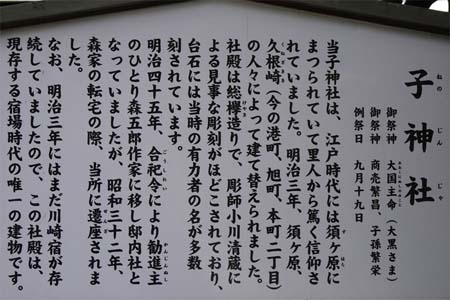 子神社
ねの じん じゃ
御祭神 大国主命(大黒さま)
おおくにぬしのみこと
御祭神 商売繁昌、子孫繁栄
例祭日 九月十九日
当子神社は、江戸時代には須ヶ原に
まつられていて里人から篤く信仰さ
れていました。明治三年、須ヶ原、
久根崎(今の港町、旭町、本町二丁目)
の人々によって建て替えられました。
社殿は総欅造りで、彫師小川清蔵に
よる見事な彫刻がほどこされており、
台石には当時の有力者の名が多数
刻されています。
明治四十五年、合祀令により勧進主
のひとり森五郎作家に移し邸内社と
なっていましたが、昭和三十二年、
森家の転宅の際、当所に遷座されま
した。
なお、明治三年にはまだ川崎宿が存
続していましたので、この社殿は、
現存する宿場時代の唯一の建物です。